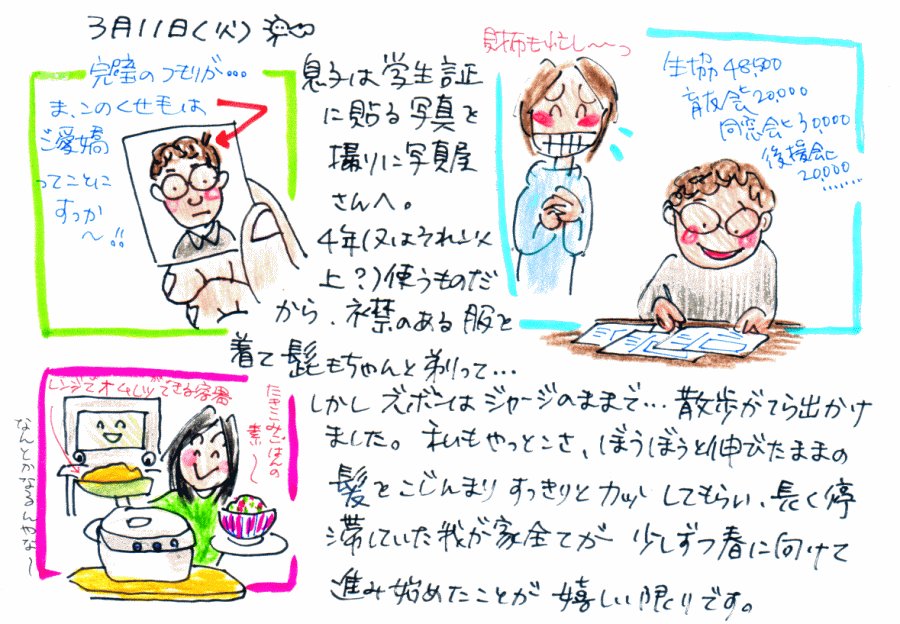 3月11日(火)
完璧のつもりが…
ま、このくせ毛は
ご愛嬌
ってことに
すっか
〜!!
息子は学生証
に貼る写真を
撮りに写真屋
さんへ。
4年(又はそれ以
上?)使うものだ
から、襟のある服を
着て髭もちゃんと剃って…
しかしズボンはジャージのままで…散歩がてら出かけ
ました。私もやっとこさ、ぼうぼうと伸びたままの
髪をこじんまりすっきりとカットしてもらい、長く停
滞していた我が家全てが少しずつ春に向けて
進み始めたことが嬉しい限りです。
財布も忙し〜っ
生協 48,500
育友会ヒ 20,000
同窓会ヒ 30,000
後援会ヒ
20,000
………
レンジでオムレツができる容器
たきこみごはんの
素〜
なんとかなるんやな〜